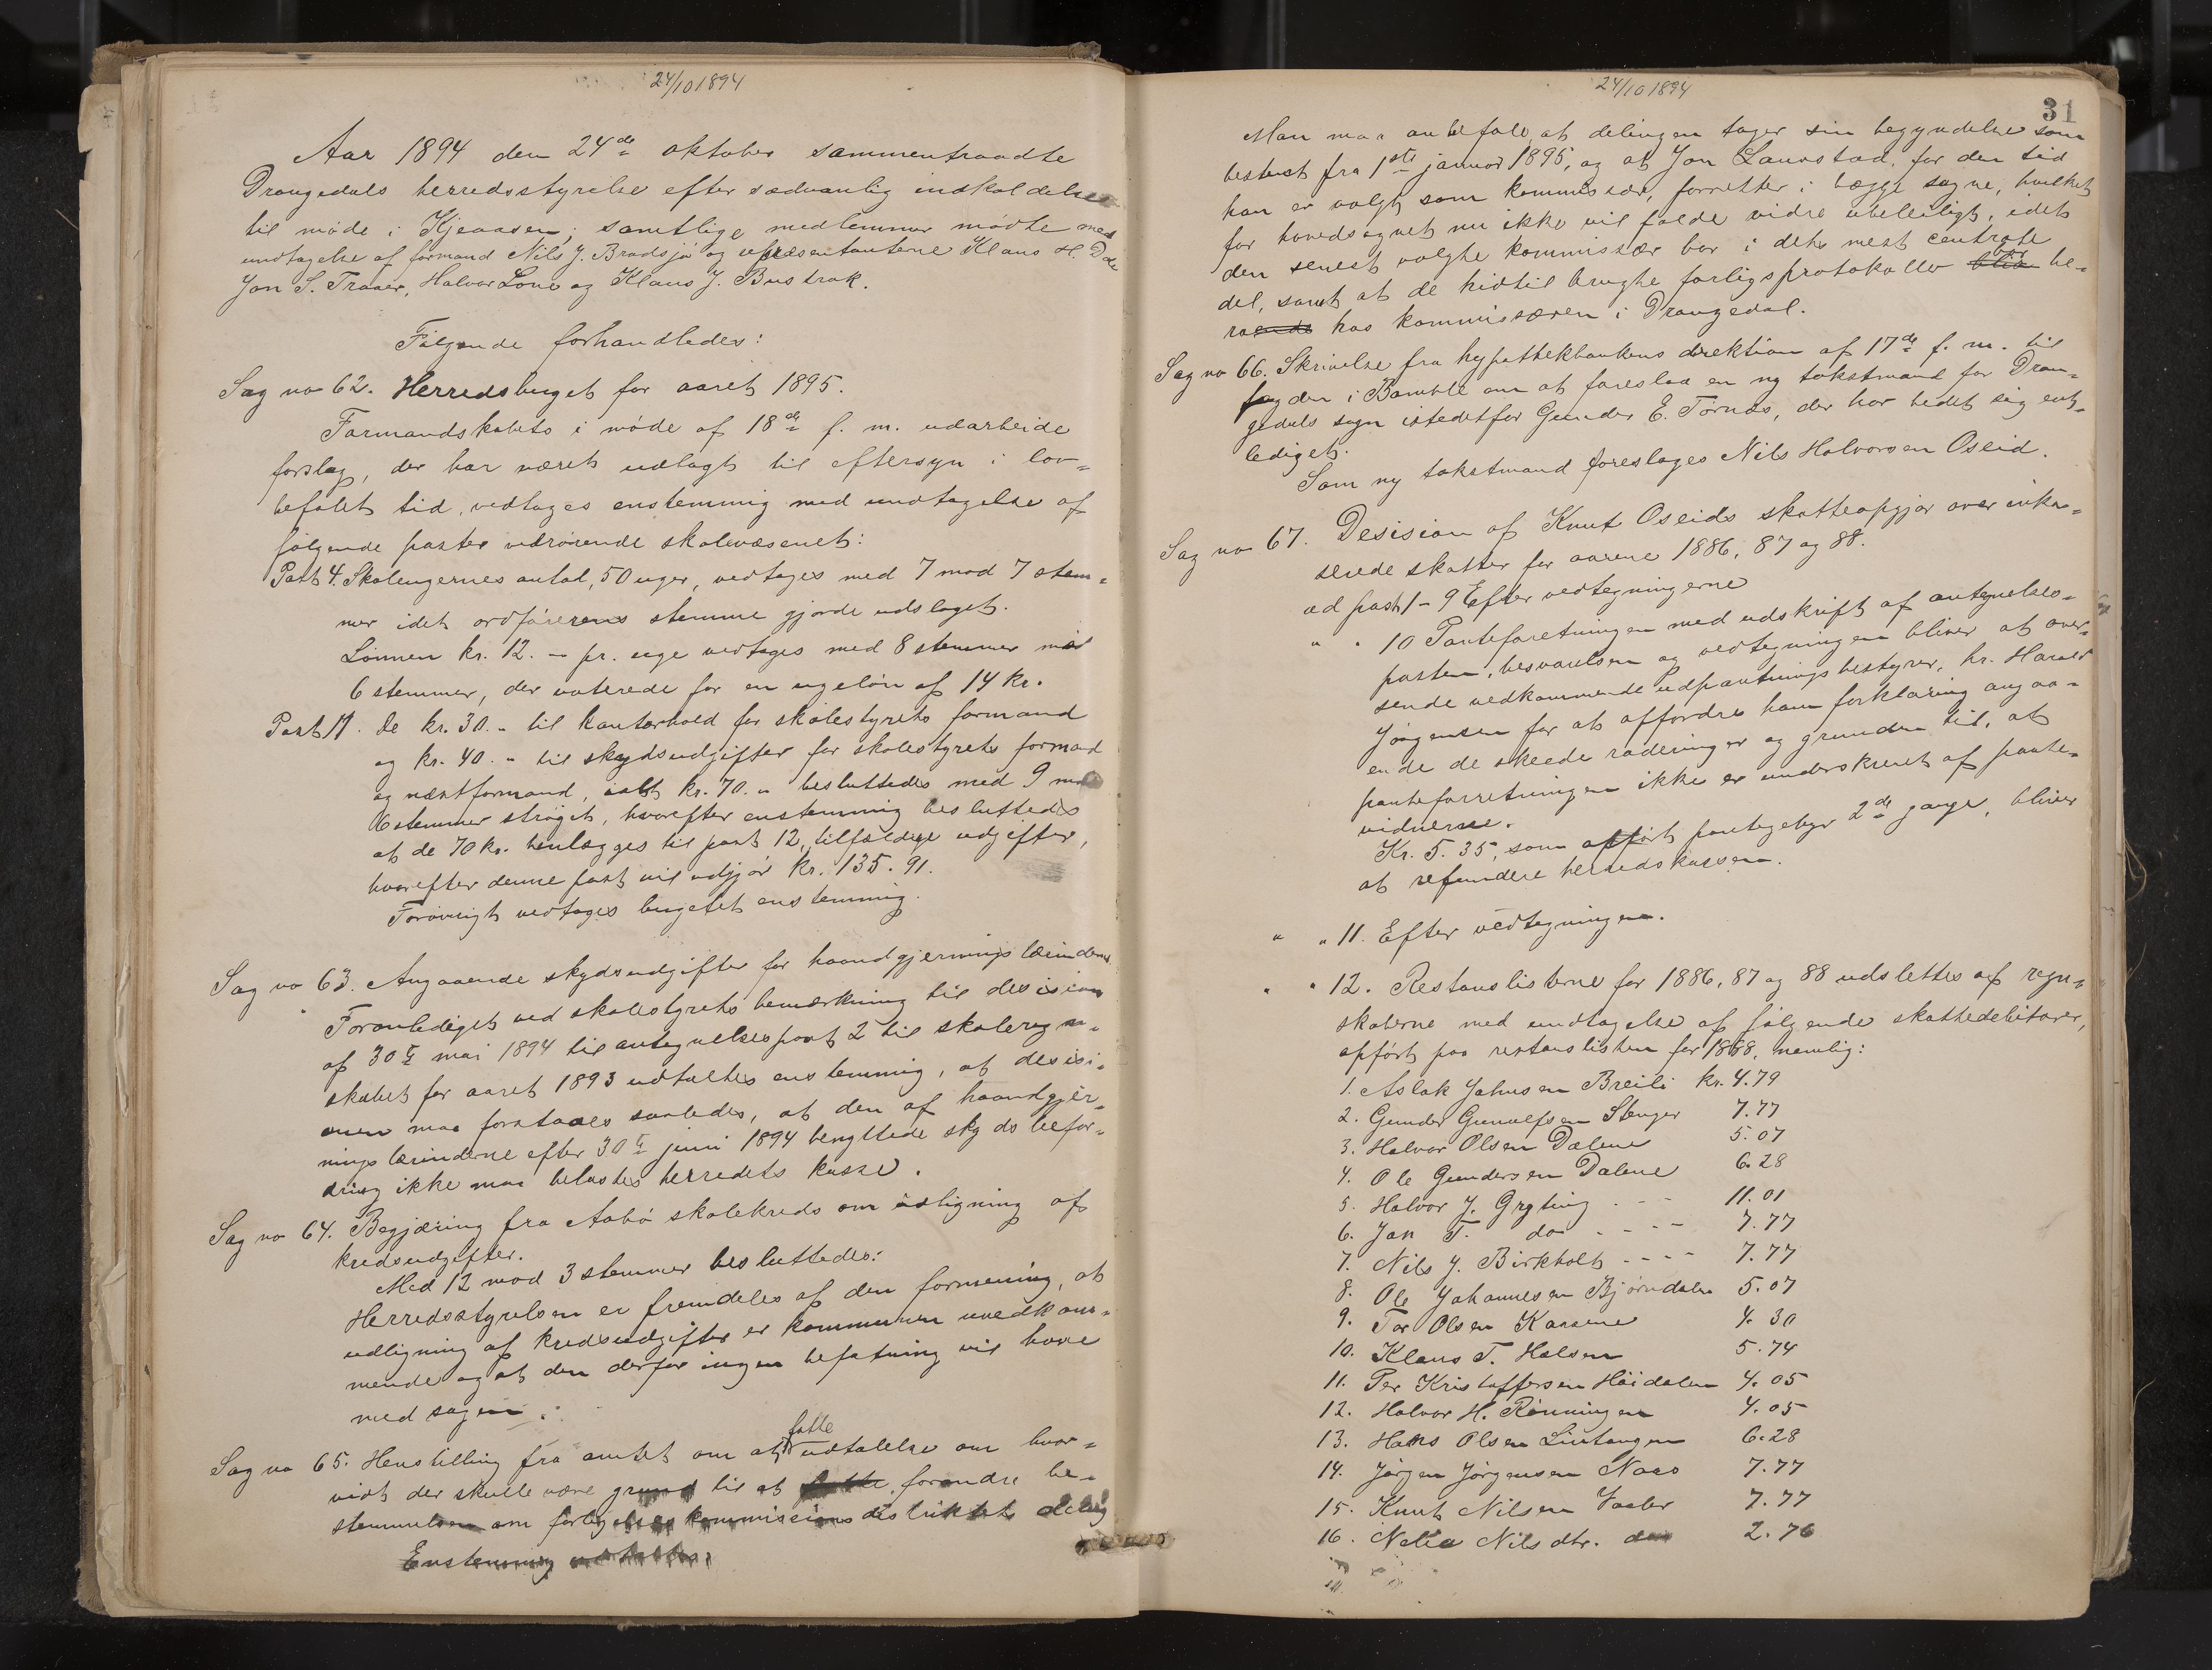 24/10 1894
Aar 1894 den 24de oktober sammentraadte
Drangedals herredsstyrelse efter sædvanlig indkaldelse
til møde i Kjeaasen; samtlige medlemmer mødte med
undtagelse af formand Nils J. Bradsjø og repræsentanterne Klaus H. Dale
Jon S. Traaer, Halvor Lone og Klaus J. Bustrak.
Følgende forhandledes:
Sag no 62. Herredsbuget for aaret 1895.
Formandskabets i møde af 18de f. m. udarbeide
forslag, der har været udlagt til eftersyn i lov-
befalet tid, vedtages enstemmig med undtagelse af
følgende poster vedrørende skolevæsenet:
Post 4. Skoleugernes antal, 50 uger, vedtages med 7 mod 7 stem-
mer idet ordførerens stemme gjorde udslaget.
Lønnen kr. 12. - pr. uge vedtages med 8 stemmer mod
6 stemmer, der voterede for en ugeløn af 14 kr.
Post 11. De kr. 30. - til kontorhold for skolestyrets formand
og kr. 40. - til skydsudgifter for skolestyrets formand
og næstformand, ialt kr. 70. - besluttedes med 9 mod
6 stemmer strøget, hvorefter enstemmig besluttedes
at de 70 kr. henlægges til post 12, tilfældige udgifter,
hvorefter denne post vil udgjør kr. 135. 91.
Forøvrigt vedtages bugetet enstemmig.
Sag no 63. Angaaende skydsudgifter for haandgjerningslærinderne
Foranlediget ved skolestyrets bemærkning til desision
af 30te mai 1894 til antegnelsespost 2 til skoleregn-
skabet for aaret 1893 udtaltes enstemmig, at desisi-
onen maa forstaaes saaledes, at den af haandgjer-
ningslærinderne efter 30te juni 1894 benyttede skydsbefor-
dring ikke maa belastes herredets kasse.
Sag no 64. Begjæring fra Aabø skolekreds om udligning af
kredsudgifter.
Med 12 mod 3 stemmer besluttedes:
Herredsstyrelsen er fremdeles af den formening, at
udligning af kredsudgifter er kommunen uvedkom-
mende og at den derfor ingen befatning vil have
med sagen.
fatte
Sag no 65. Henstilling fra amtet om at udtalelse om hvor-
vidt der skulle være grund til at forandre be-
stemmelsen om forligelseskommissionsdistriktets deling
Enstemmig
24/10 1894
31
Man maa anbefale, at delingen tager sin begyndelse som
bestemt fra 1ste januar 1895, og at Jon Lauvstad, for den tid
han er valgt som kommissær, forretter i begge sogne, hvilket
for hovedsognet nu ikke vil falde vidre ubeleiligt, idet
den senest valgte kommissær bor i dets mest centrale
del, samt at de hidtil brugte forligsprotokoller bliv bør be-
roende hos kommissæren i Drangedal.
Sag no 66. Skrivelse fra hypothekbankens direktion af 17de f. m. til
fogden i Bamble om at foreslaa en ny takstmand for Dran-
gedals sogn istedetfor Gunder E. Tørnæs, der har bedet sig ent-
lediget.
Som ny takstmand foreslages Nils Halvorsen Oseid.
Sag no 67. Desision af Knut Oseids skatteopgjør over inka-
serede skatter for aarene 1886, 87 og 88.
ad post 1-9 Efter vedtegningerne
" " 10 Panteforetningen med udskrift af antegnelses-
posten, besvarelsen og vedtegningen bliver at over-
sende vedkommende udpantningsbestyrer, hr. Harald
Jørgensen for at affordre ham forklaring angaa-
ende de skeede raderinger og grunden til, at
panteforretningen ikke er underskrevet af pante-
vidnerne.
Kr. 5. 35, som opført pantegebyr 2de gange, bliver
at refundere herredskassen.
" " 11. Efter vedtegningen.
" " 12. Restanslisterne for 1886, 87 og 88 udslettes af regn-
skaberne med undtagelse af følgende skattedebitorer,
opført paa restanslisten for 1888, nemlig:
1. Aslak Jahnsen Breili kr. 4.79
2. Gunder Gunulfsen Stenger 7.77
3. Halvor Olsen Dalene 5.07
4. Ole Gundersen Dalene 6.28
5. Halvor J. Grgting - - 11.01
6. Jan T. do - - - - 7.77
7. Nils J. Birkholt - - - - 7.77
8. Ole Johannesen Bjørndalen 5.07
9. Tor Olsen Kasene 4. 30
10. Klaus T. Halsen 5.74
11. Per Kristoffersen Høidalen 4. 05
12. Halvor H. Rønningen 4.05
13. Hans Olsen Lintangen 6.28
14. Jørgen Jørgensen Naas 7.77
15. Knut Nilsen Vaaler 7.77
16. Nelia Nilsdtr. do 2.76